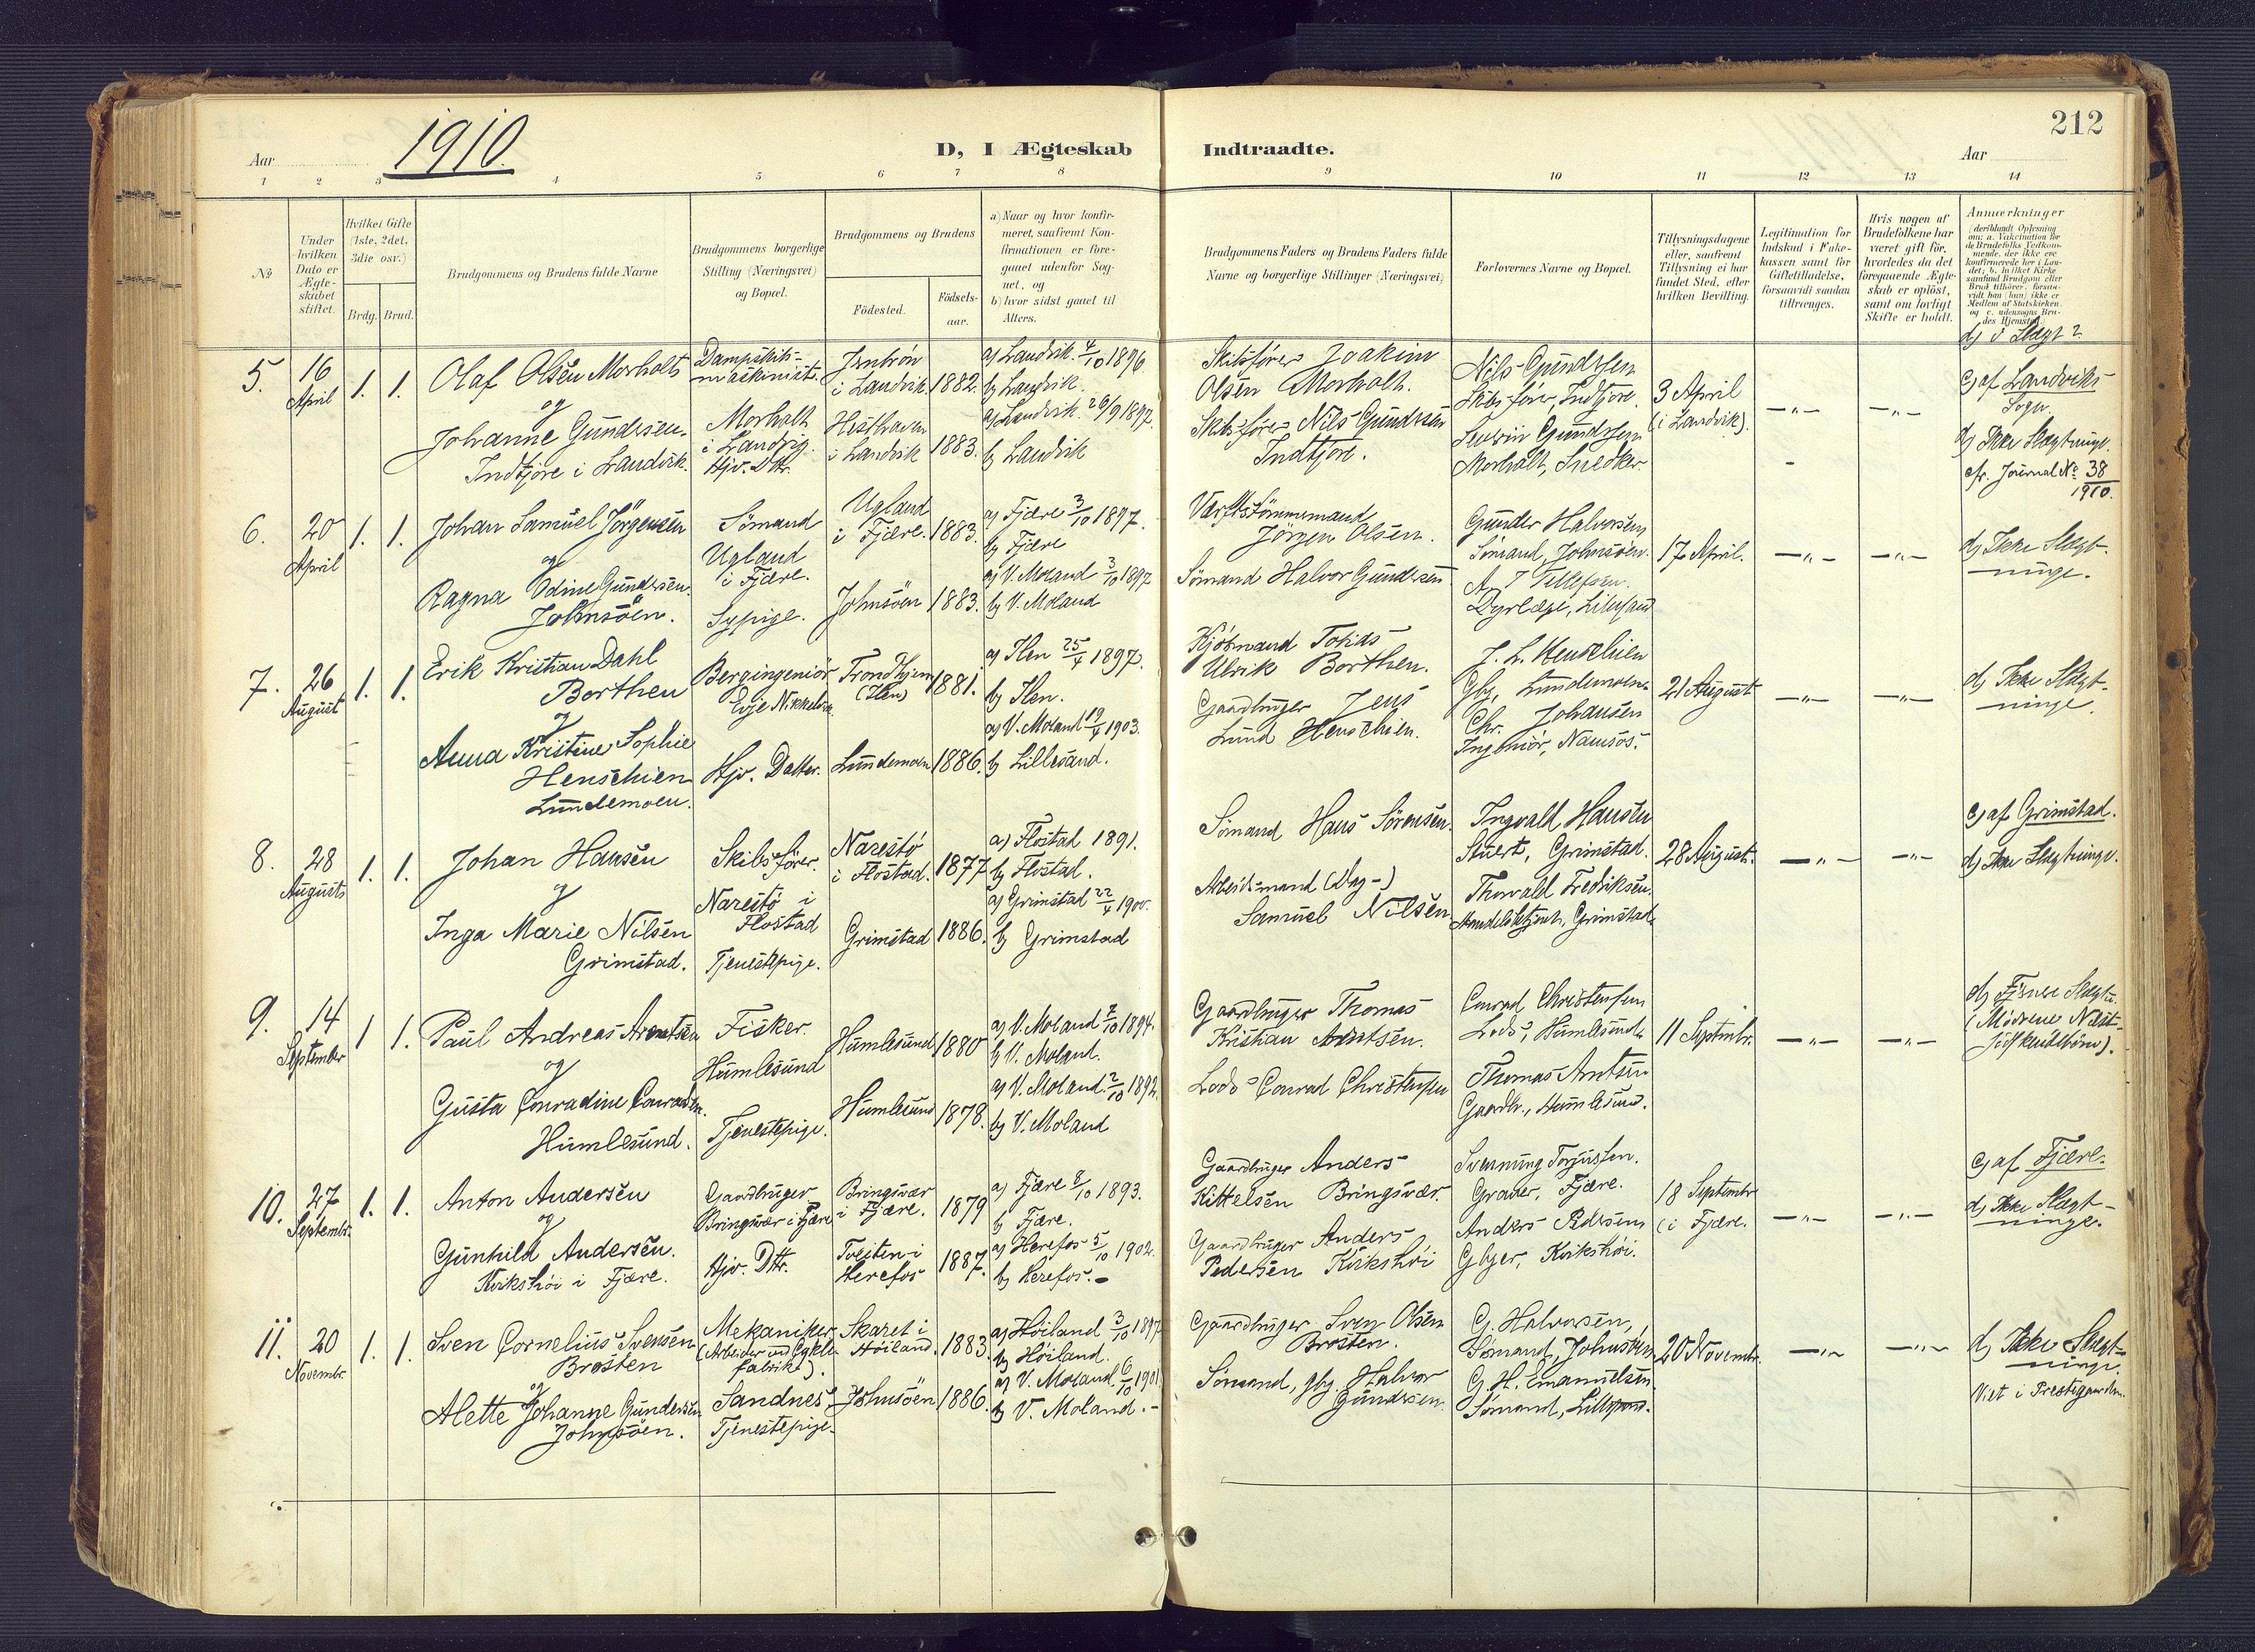 1910.
212
Aar
D, I Ægteskab
Indtraadte.
Aar
1 2 3 4 5 6 7 8 9 10 11 12 13 14
No
Under hvilken Dato er Ægteskabet stiftet.
Hvilket Gifte (1ste, 2det, 3die osv.)
Brdg.
Brud.
Brudgommens og Brudens fulde Navne
Brudgommens borgerlige Stilling (Næringsvei) og Bopæl.
Brudgommens og Brudens
Födested.
Födsels-aar.
a) Naar og hvor konfirmeret, saafremt Konfirmationen er foregaaet udenfor Sognet, og
b) hvor sidst gaaet til Alters.
Brudgommens Faders og Brudens Faders fulde Navne og borgerlige Stillinger (Næringsvei)
Forlovernes Navne og Bopæl.
Tillysningsdagene eller, saafremt Tillysning ei har fundet Sted, efter hvilken Bevilling.
Legitimation for Indskud i Enkekassen samt for Giftetilladelse, forsaavidt saadan tiltrænges.
Hvis nogen af Brudefolkene har været gift för, hvorledes da det foregaaende Ægteskab er oplöst, samt om lovligt Skifte er holdt.
Anmærkninger
d) i Slægt?
5.
16 April
1. 1.
Olaf Olsen Morholt
og
Johanne Gundersen
Indtjöre i Landvik.
Dampskibs-
maskinist.
Morholt
i Landvig.
Hjv. Dtr.
i Landvik. 1882.
i Landvik 1883.
a) Landvik. 4/10 1896
b) Landvik.
a) Landvik 26/9 1897.
b) Landvik
Skibsförer Joakim
Olsen Morholt.
Skibsförer Nils Gundersen
Indtjöre.
Nils Gundersen
Skibsförer, Indtjöre.
Severin Gundersen
Morholt, Snedker.
3 April
(i Landvik).
—„—
—„—
c) af Landviks
Sogn.
d) Ikke Slægtninge.
cfr. Journal No 38/1910.
6.
20 April
1. 1.
Johan Samuel Jörgensen
og
Ragna Odine Gundersen
Johnsöen.
Sömand
Ugland
i Fjære.
Sypige.
Ugland
i Fjære. 1883.
Johnsöen 1883.
a) Fjære 3/10 1897.
b) Fjære
a) V. Moland 3/10 1897
b) V. Moland
Værftstömmermand
Jörgen Olsen.
Sömand Halvor Gundersen
Gunder Halvorsen
Sömand, Johnsöen.
Dyrlæge, Lillesand
17 April.
—„—
—„—
d) Ikke Slægt-
ninge.
7.
26 August
1. 1.
Erik Kristian Dahl
Borthen
og
Anna Kristine Sophie
Henschien
Lundemoen.
Bergingeniör
Evje Nikkelv.
Hjv. Datter.
Trondhjem
(Ilen) 1881.
Lundemoen 1886.
a) Ilen 25/4 1897.
b) Ilen.
a) V. Moland 19/4 1903.
b) Lillesand.
Kjöbmand Tobias
Ulrik Borthen.
Gaardbruger Jens
Lund Henschien.
J. L. Henschien
Gbr., Lundemoen.
Chr. Johansen
Ingeniör, Namsos.
21 August
—„—
—„—
d) Ikke Slægt-
ninge.
8.
28 August
1. 1.
Johan Hansen
og
Inga Marie Nilsen
Grimstad.
Skibsförer.
Narestö i
Flostad
Tjenestepige.
Narestö
i Flostad. 1877
Grimstad 1886.
a) Flostad 1891.
b) Flostad.
a) Grimstad 22/4 1900.
b) Grimstad
Sömand Hans Sörensen.
Arbeidsmand (Dag-)
Samuel Nilsen
Ingvald Hansen
Stuert, Grimstad.
Thorvald Fredriksen.
Handelsbetjent, Grimstad.
28 August.
—„—
—„—
c) af Grimstad.
d) Ikke Slægtninge.
9.
14 September
1 1.
Paul Andreas Arentsen
og
Gusta Conradine Conradsen.
Humlesund.
Fisker.
Humlesund
Tjenestepige.
Humlesund 1880
Humlesund 1878.
a) V. Moland 7/10 1894.
b) V. Moland.
a) V. Moland 2/10 1892.
b) V. Moland
Gaardbruger Thomas
Kristian Arntsen.
Lods Conrad Christensen
Conrad Christensen
Lods, Humlesund.
Thomas Arntsen
Gaardb., Humlesund.
11 Septembr.
—„—
—„—
(Mödrene Næst-
södskendebörn).
10.
27 Septembr.
1. 1.
Anton Andersen
og
Gunhild Andersen.
Kvikshöi i Fjære.
Gaardbruger
Bringsvær i Fjære
Hjv. Dtr.
Bringsvær
i Fjære. 1879
Tveiten i
Herefos 1887.
a) Fjære 8/10 1893.
b) Fjære.
a) Herefos 5/10 1902.
b) Herefos.
Gaardbruger Anders
Kittelsen Bringsvær.
Gaardbruger Anders
Pedersen Kvikshöi
Svenning Torjussen.
Graver, Fjære.
Anders Pedersen
Gbger, Kvikshöi.
18 Septembr
(i Fjære.
—„—
—„—
c) af Fjære.
d) Ikke Slægt-
ninge.
11.
20 Novembr.
1. 1.
Sven Cornelius Svensen
Brosten
og
Alette Johanne Gundersen
Johnsöen.
Mekaniker
(Arbeider ved Cykle-
fabrik).
Sandnes
Tjenestepige.
Skaret i
Höiland. 1883.
Johnsöen 1886.
a) Höiland 3/10 1897
b) Höiland.
a) V. Moland 6/10 1901
b) V. Moland.
Gaardbruger Sven Olsen
Brosten.
Sömand, gbg. Halvor
Gundersen.
G. Halvorsen,
Sömand, Johnsöen
G. H. Emanuelsen
Sömand, Lillesand.
20 Novembr.
—„—
—„—
d) Ikke Slægt-
ninge.
Viet i Prestegaarden.